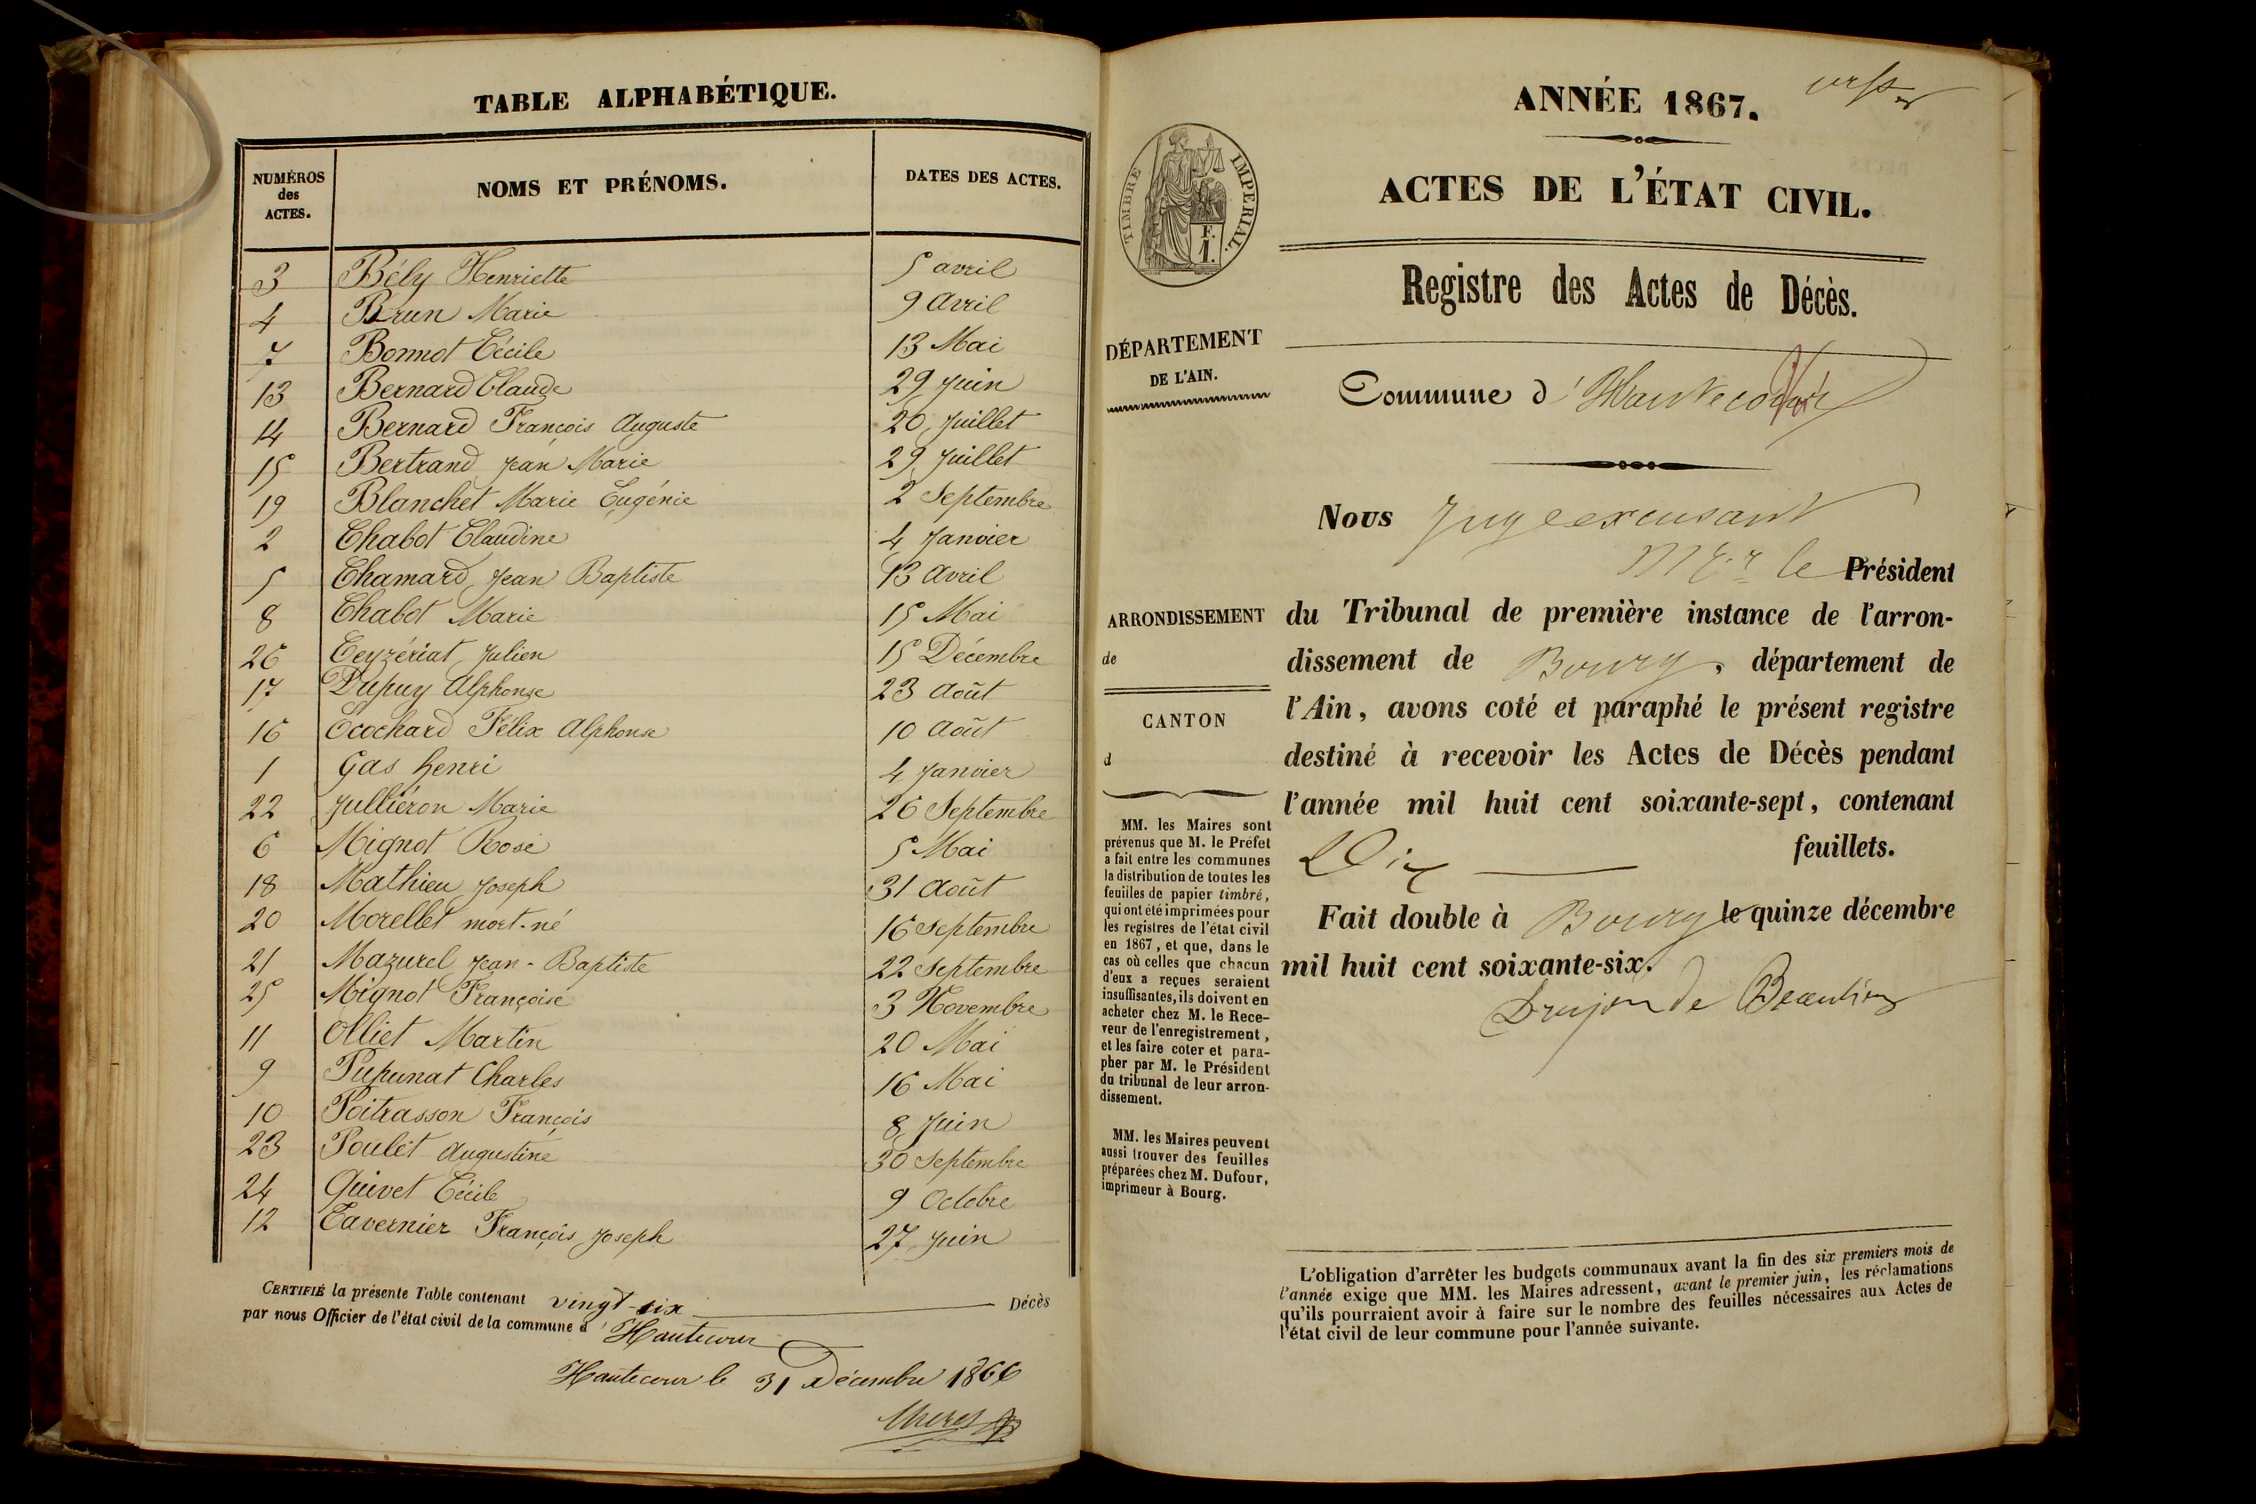 TABLE ALPHABÉTIQUE.
NUMÉROS des ACTES. NOMS ET PRÉNOMS. DATES DES ACTES.
3 Bély Henriette 5 avril
4 Brun Marie 9 Avril
7 Bonnot Cécile 13 Mai
13 Bernard Claude 29 Juin
14 Bernard François Auguste 20 Juillet
15 Bertrand Jean Marie 29 Juillet
19 Blanchet Marie Eugénie 2 Septembre
2 Chabot Claudine 4 Janvier
5 Chamard Jean Baptiste 13 Avril
8 Chabot Marie 15 Mai
26 Ceyzériat Julien 15 Décembre
17 Dupuy Alphonse 23 Août
16 Ecochard Félix Alphonse 10 Août
1 Gas henri 4 Janvier
22 Julliéron Marie 26 Septembre
6 Mignot Rose 5 Mai
18 Mathieu Joseph 31 Août
20 Morellet mort-né 16 Septembre
21 Mazurel Jean-Baptiste 22 Septembre
25 Mignot Françoise 3 Novembre
11 Olliet Martin 20 Mai
9 Pupunat Charles 16 Mai
10 Poitrasson François 8 Juin
23 Poulet Augustine 30 Septembre
24 Quivet Cécile 9 Octobre
12 Tavernier François Joseph 27 Juin
CERTIFIÉ la présente Table contenant vingt-six Décès
par nous Officier de l'état civil de la commune d' Hautecour
Hautecour le 31 Décembre 1866
ANNÉE 1867.
TIMBRE IMPERIAL.
F.
1.
ACTES DE L'ÉTAT CIVIL.
Registre des Actes de Décès.
DÉPARTEMENT
DE L'AIN.
Commune d'Hautecour
Nous Juge excusant
le Président
du Tribunal de première instance de l'arron-
dissement de Bourg, département de
l'Ain, avons coté et paraphé le présent registre
destiné à recevoir les Actes de Décès pendant
l'année mil huit cent soixante-sept, contenant
Dix feuillets.
Fait double à Bourg le quinze décembre
mil huit cent soixante-six.
Drujon de Beaulieu
ARRONDISSEMENT
de
CANTON
d
MM. les Maires sont
prévenus que M. le Préfet
a fait entre les communes
la distribution de toutes les
feuilles de papier timbré,
qui ont été imprimées pour
les registres de l'état civil
en 1867, et que, dans le
cas où celles que chacun
d'eux a reçues seraient
insuffisantes, ils doivent en
acheter chez M. le Rece-
veur de l'enregistrement,
et les faire coter et para-
pher par M. le Président
du tribunal de leur arron-
dissement.
MM. les Maires peuvent
aussi trouver des feuilles
préparées chez M. Dufour,
imprimeur à Bourg.
L'obligation d'arrêter les budgets communaux avant la fin des six premiers mois de
l'année exige que MM. les Maires adressent, avant le premier juin, les réclamations
qu'ils pourraient avoir à faire sur le nombre des feuilles nécessaires aux Actes de
l'état civil de leur commune pour l'année suivante.